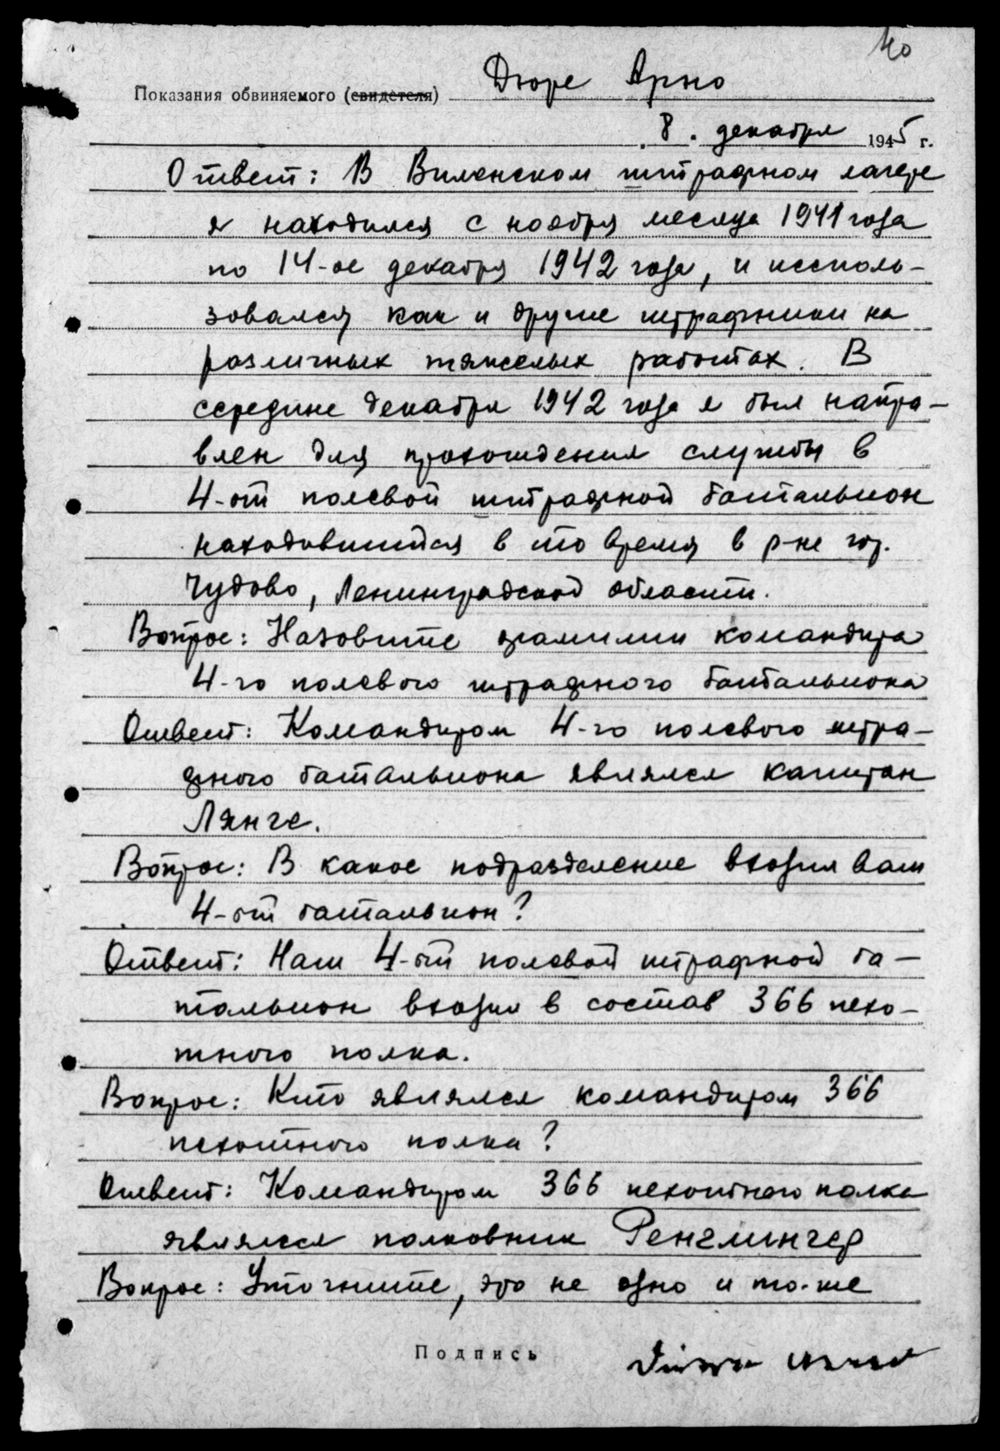 40
Показания обвиняемого (свидетеля) Дюре Арно
8. декабря 1945 г.
Ответ: В Виленском штрафном лагере
я находился с ноября месяца 1941 года
по 14-ое декабря 1942 года, и исполь-
зовался как и другие штрафники на
различных тяжелых работах. В
середине декабря 1942 года я был напра-
влен для прохождения службы в
4-ый полевой штрафной батальион
находившийся в то время в р-не гор.
Чудово, Ленинградской области.
Вопрос: Назовите фамилии командира
4-го полевого штрафного батальиона
Ответ: Командиром 4-го полевого штра-
фного батальиона являлся капитан
Лянге.
Вопрос: В какое подразделение входил ваш
4-ый батальион?
Ответ: Наш 4-ый полевой штрафной ба-
тальион входил в состав 366 пехо-
тного полка.
Вопрос: Кто являлся командиром 366
пехотного полка?
Ответ: Командиром 366 пехотного полка
являлся полковник Ренглингер
Вопрос: Уточните, это не одно и то-же
Подпись